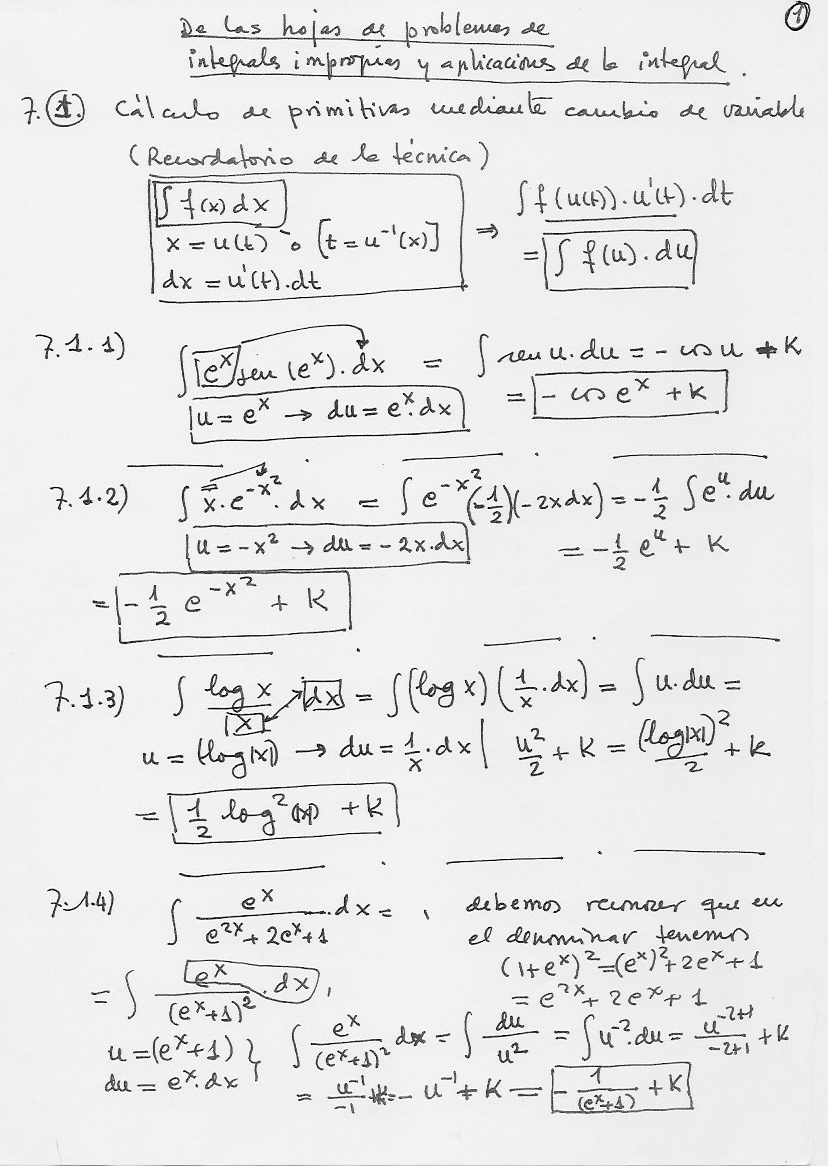 1
De las hojas de problemas de
integrales impropias y aplicaciones de la integral.
7.1. Cálculo de primitivas mediante cambio de variable
(Recordatorio de la técnica)
∫ f(x) dx
x = u(t) o [t = u⁻¹(x)]
dx = u'(t)·dt
⇒ ∫ f(u(t))·u'(t)·dt
= ∫ f(u)·du
7.1.1) ∫ eˣ sen(eˣ)·dx = ∫ sen u·du = - cos u + K
u = eˣ → du = eˣ·dx
= - cos eˣ + K
7.1.2) ∫ x·e^(-x²)·dx = ∫ e^(-x²)(-1/2)(-2x dx) = -1/2 ∫ eᵘ·du
u = -x² → du = -2x·dx
= -1/2 eᵘ + K
= -1/2 e^(-x²) + K
7.1.3) ∫ log x / x dx = ∫ (log x)(1/x·dx) = ∫ u·du =
u = (log|x|) → du = 1/x·dx | u²/2 + K = (log|x|)²/2 + K
= 1/2 log²|x| + K
7.1.4) ∫ eˣ/(e²ˣ + 2eˣ + 1)·dx = , debemos reconocer que en
el denominar tenemos
(1+eˣ)² = (eˣ)² + 2eˣ + 1
= e²ˣ + 2eˣ + 1
= ∫ eˣ/(eˣ+1)²·dx,
u = (eˣ+1) }
du = eˣ·dx
∫ eˣ/(eˣ+1)² dx = ∫ du/u² = ∫ u⁻²·du = u⁻²⁺¹/(-2+1) + K
= u⁻¹/-1 + K = - u⁻¹ + K = - 1/(eˣ+1) + K